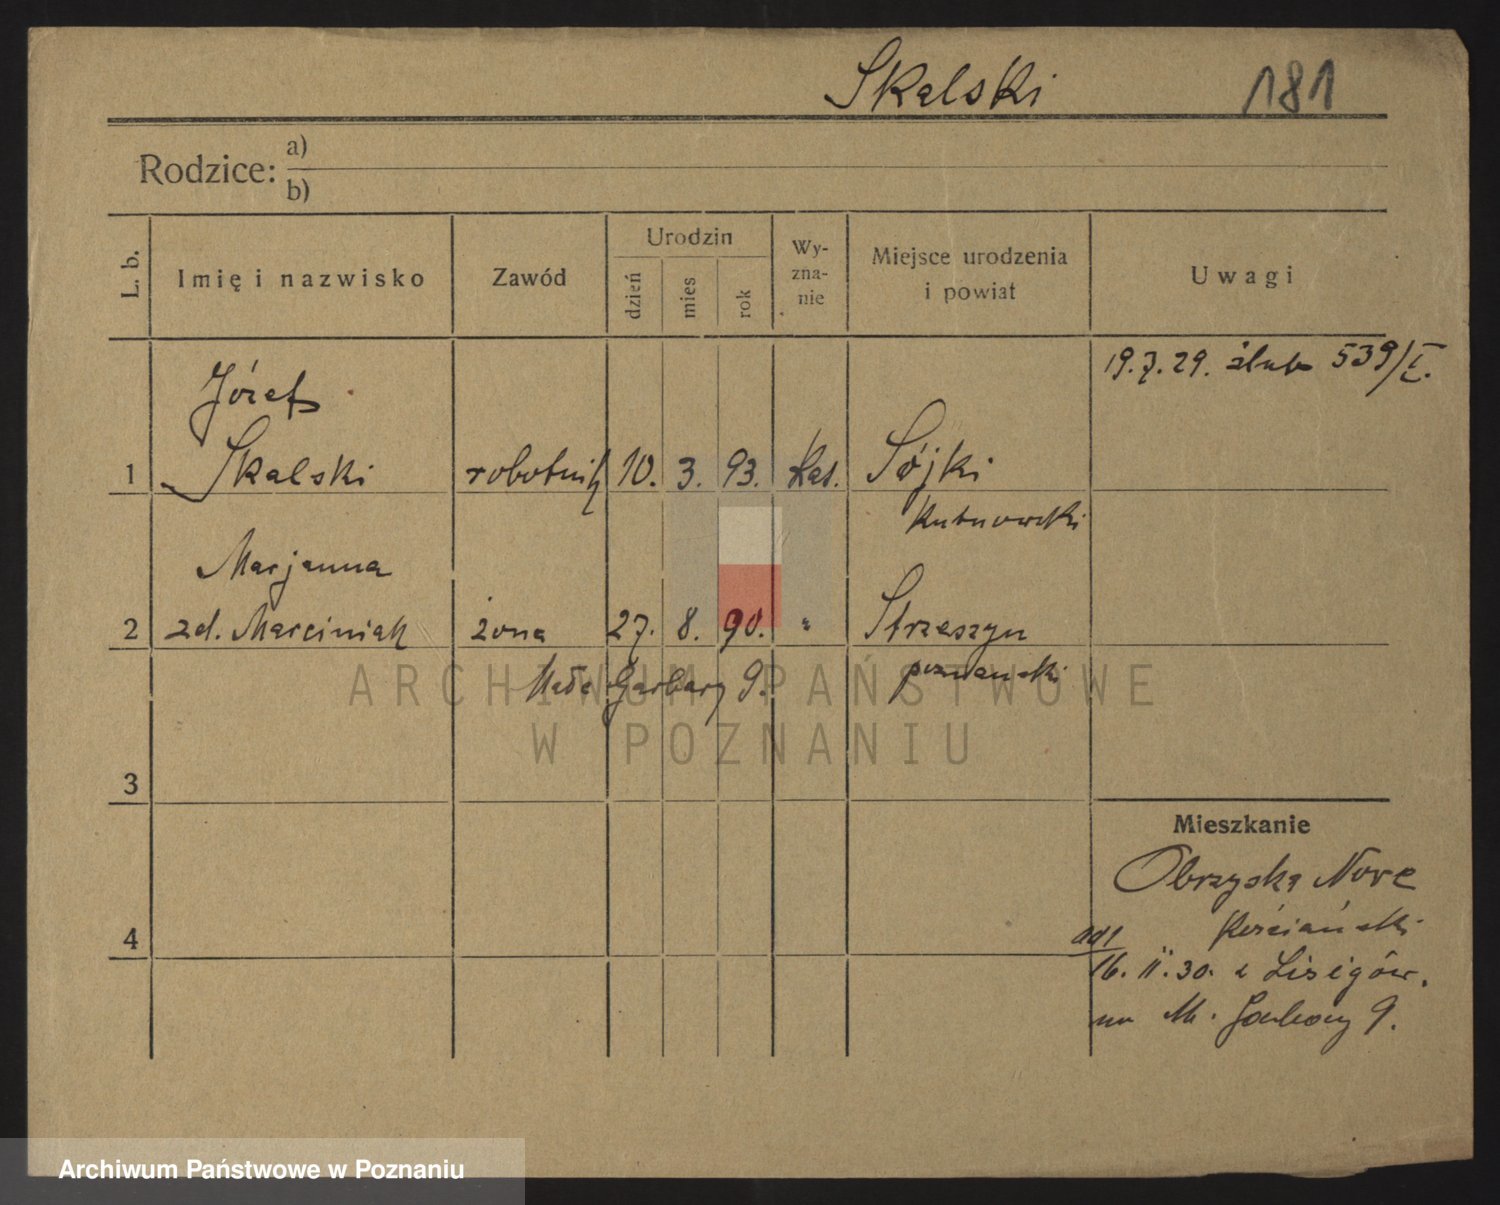 Skalski 181
Rodzice: a)
b)
L. b. Imię i nazwisko Zawód Urodzin dzień mies rok Wy-zna-nie Miejsce urodzenia i powiat Uwagi
19.7.29. ślub 539/I.
Józef
1 Skalski robotnik 10. 3. 93. kat. Sójki
kutnowski
Marjanna
2 zd. Marciniak żona 27. 8. 90. " Strzeszyn
Małe Garbary 9. poznański
ARCHIWUM PAŃSTWOWE
W POZNANIU
3
Mieszkanie
Obrzyska Nove
4 kościański
ad1
16. II. 30. z
na M. Garbary 9.
Archiwum Państwowe w Poznaniu